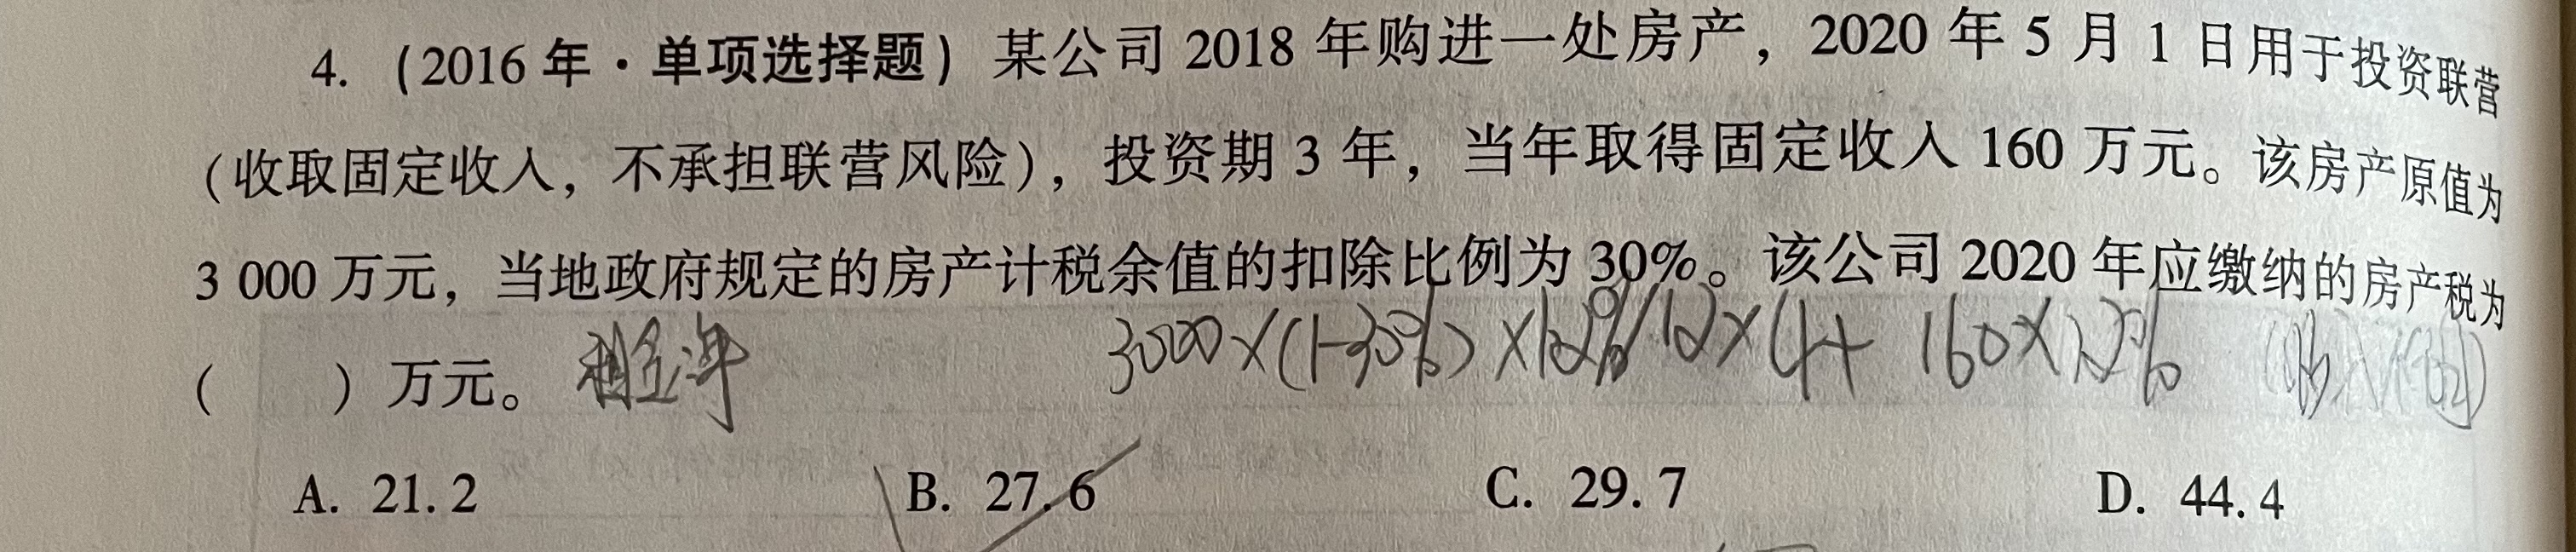 4. (2016年·单项选择题) 某公司2018年购进一处房产，2020年5月1日用于投资联营
(收取固定收入，不承担联营风险)，投资期3年，当年取得固定收入160万元。该房产原值为
3 000万元，当地政府规定的房产计税余值的扣除比例为30%。该公司2020年应缴纳的房产税为
(　　) 万元。 3000×(1-30%)×1.2%/12×4+160×12%
A. 21.2 B. 27.6 C. 29.7 D. 44.4